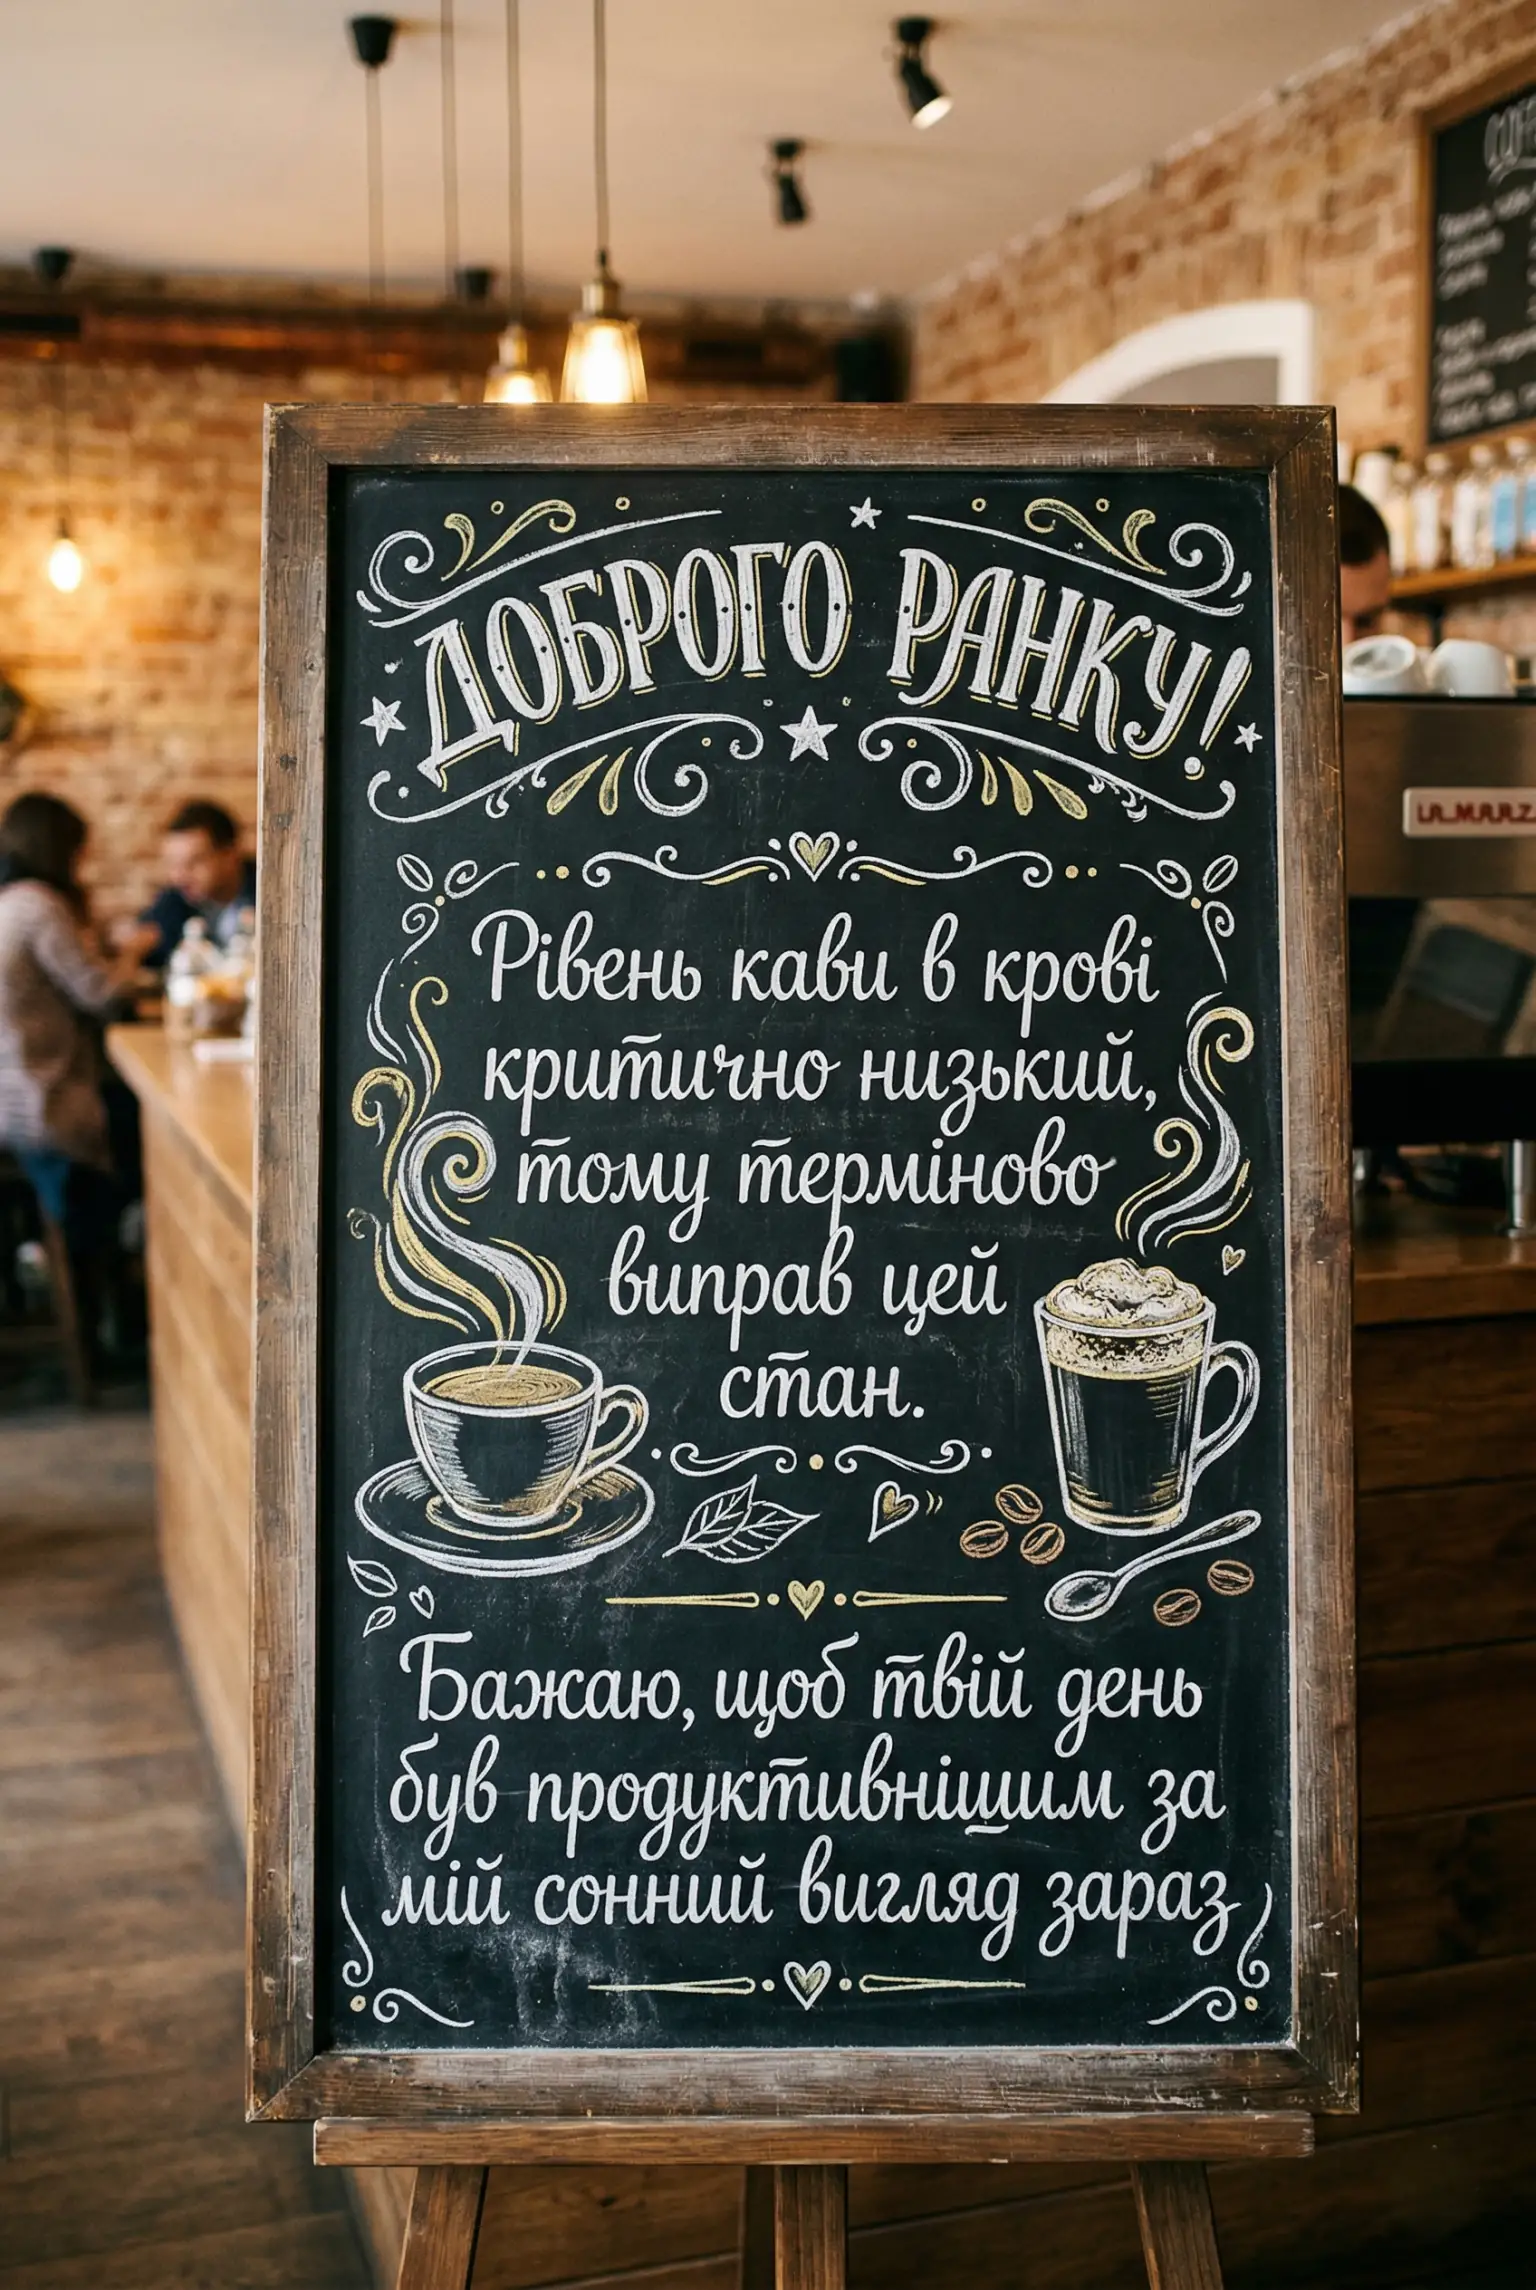 ДОБРОГО РАНКУ!
Рівень кави в крові
критично низький,
тому терміново
виправ цей
стан.
Бажаю, щоб твій день
був продуктивнішим за
мій сонний вигляд зараз